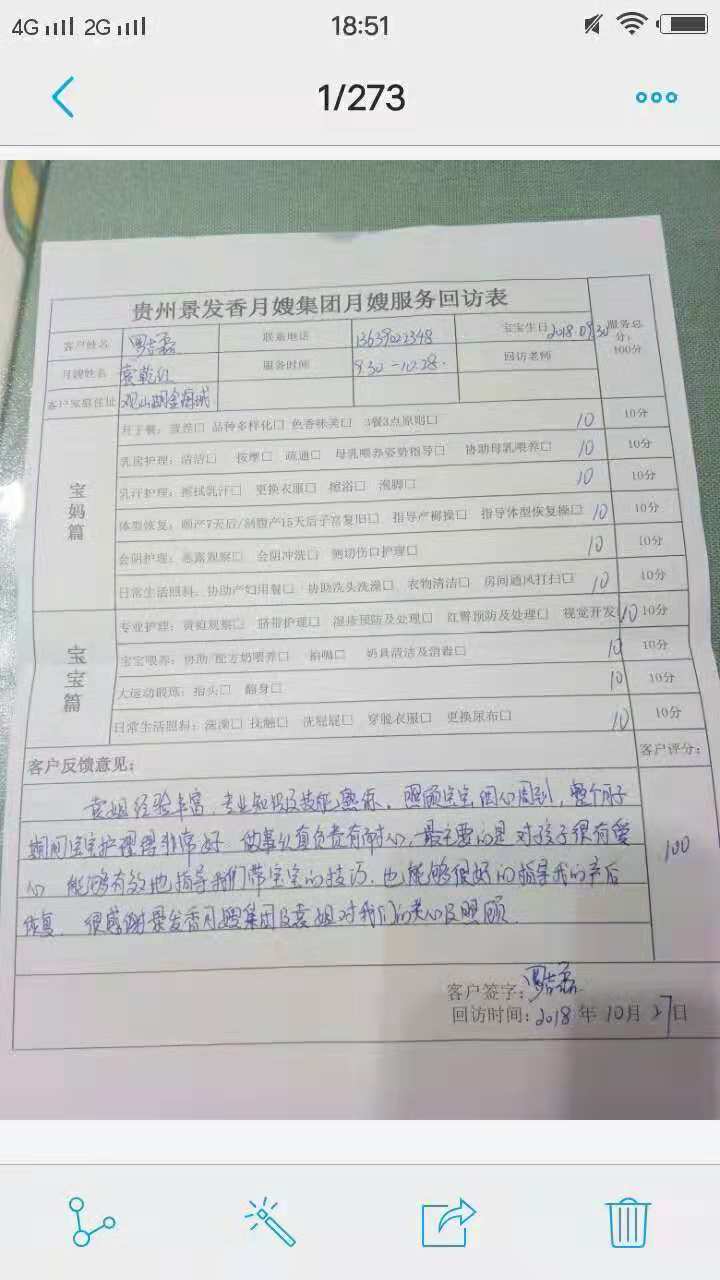 4G 2G 18:51
1/273
贵州景发香月嫂集团月嫂服务回访表
客户姓名 联系电话 13639022348 宝宝生日 2018.09.30 服务总分：100分
月嫂姓名 袁乾红 服务时间 9.30-10.28. 回访老师
客户家庭住址 观山湖金海城
宝妈篇
月子餐：营养□ 品种多样化□ 色香味美□ 3餐3点原则□ 10 10分
乳房护理：清洁□ 按摩□ 疏通□ 母乳喂养姿势指导□ 协助母乳喂养□ 10 10分
乳汁护理：擦拭乳汁□ 更换衣服□ 擦浴□ 泡脚□ 10 10分
体型恢复：顺产7天后/剖腹产15天后子宫复旧□ 指导产褥操□ 指导体型恢复操□ 10 10分
会阴护理：恶露观察□ 会阴冲洗□ 侧切伤口护理□ 10 10分
日常生活照料：协助产妇用餐□ 协助洗头洗澡□ 衣物清洁□ 房间通风打扫□ 10 10分
宝宝篇
专业护理：黄疸观察□ 脐带护理□ 湿疹预防及处理□ 红臀预防及处理□ 视觉开发 10 10分
宝宝喂养：协助 配方奶喂养□ 拍嗝□ 奶具清洁及消毒□ 10 10分
大运动锻炼：抬头□ 翻身□ 10 10分
日常生活照料：洗澡□ 抚触□ 洗屁屁□ 穿脱衣服□ 更换尿布□ 10 10分
客户反馈意见： 客户评分：
袁姐经验丰富，专业知识及技能熟练，照顾宝宝细心周到，整个月子
期间宝宝护理得非常好 做事认真负责有耐心，最主要的是对孩子很有爱
心 能够有效地指导我们带宝宝的技巧，也能够很好的指导我的产后
恢复 很感谢景发香月嫂集团及袁姐对我们的关心及照顾
100
客户签字：
回访时间：2018年10月27日